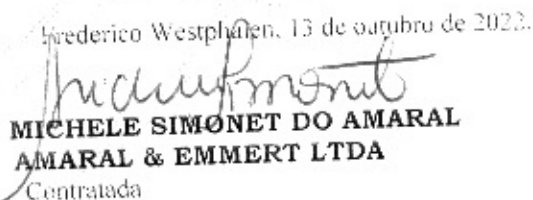 Frederico Westphalen, 13 de outubro de 2022.
MICHELE SIMONET DO AMARAL
AMARAL & EMMERT LTDA
Contratada